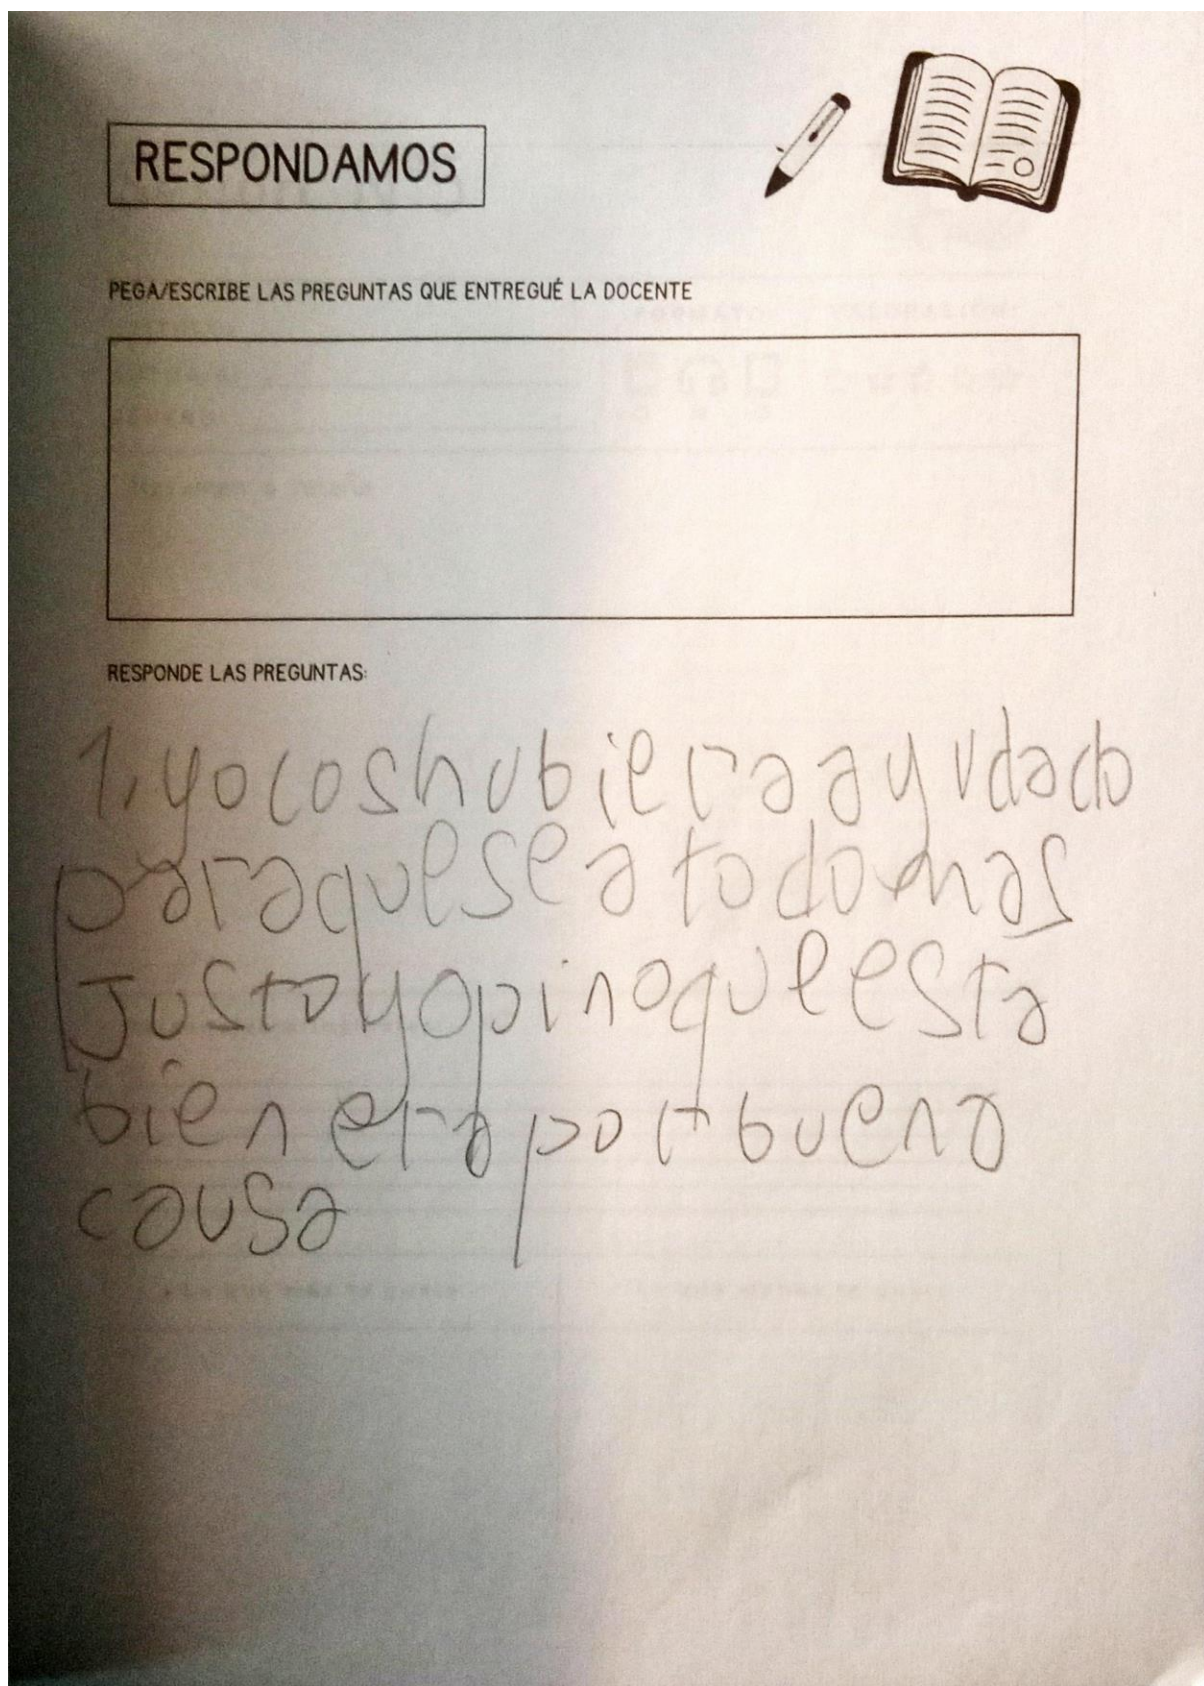 RESPONDAMOS
PEGA/ESCRIBE LAS PREGUNTAS QUE ENTREGUÉ LA DOCENTE
RESPONDE LAS PREGUNTAS:
1, yo los hubiera ayudado
para que sea todo mas
Justo y opino que esta
bien era por buena
causa